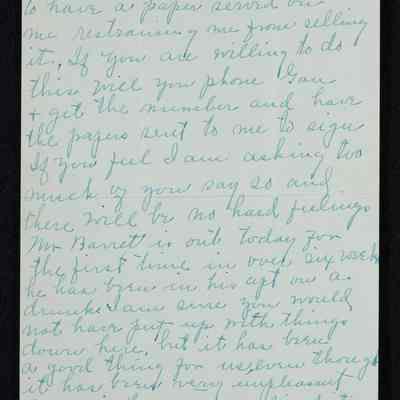 to have a paper served on
me restraining me from selling
it. If you are willing to do
this will you phone Gau
+ get the number and have
the papers sent to me to sign
If you feel I am asking too
much of you say so and
there will be no hard feelings
Mr Barrett is out today for
the first time in over six weeks
he has been in his apt on a
drunk. I am sure you would
not have put up with things
down here, but it has been
a good thing for us, even though
it has been very unpleasant